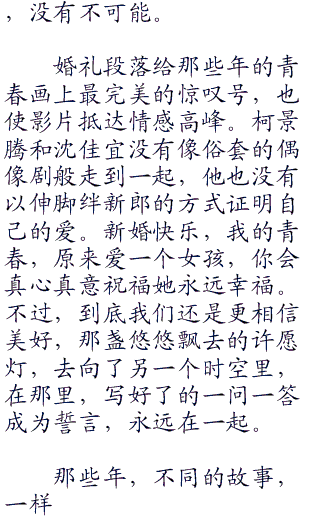 ，没有不可能。
婚礼段落给那些年的青
春画上最完美的惊叹号，也
使影片抵达情感高峰。柯景
腾和沈佳宜没有像俗套的偶
像剧般走到一起，他也没有
以伸脚绊新郎的方式证明自
己的爱。新婚快乐，我的青
春，原来爱一个女孩，你会
真心真意祝福她永远幸福。
不过，到底我们还是更相信
美好，那盏悠悠飘去的许愿
灯，去向了另一个时空里，
在那里，写好了的一问一答
成为誓言，永远在一起。
那些年，不同的故事，
一样